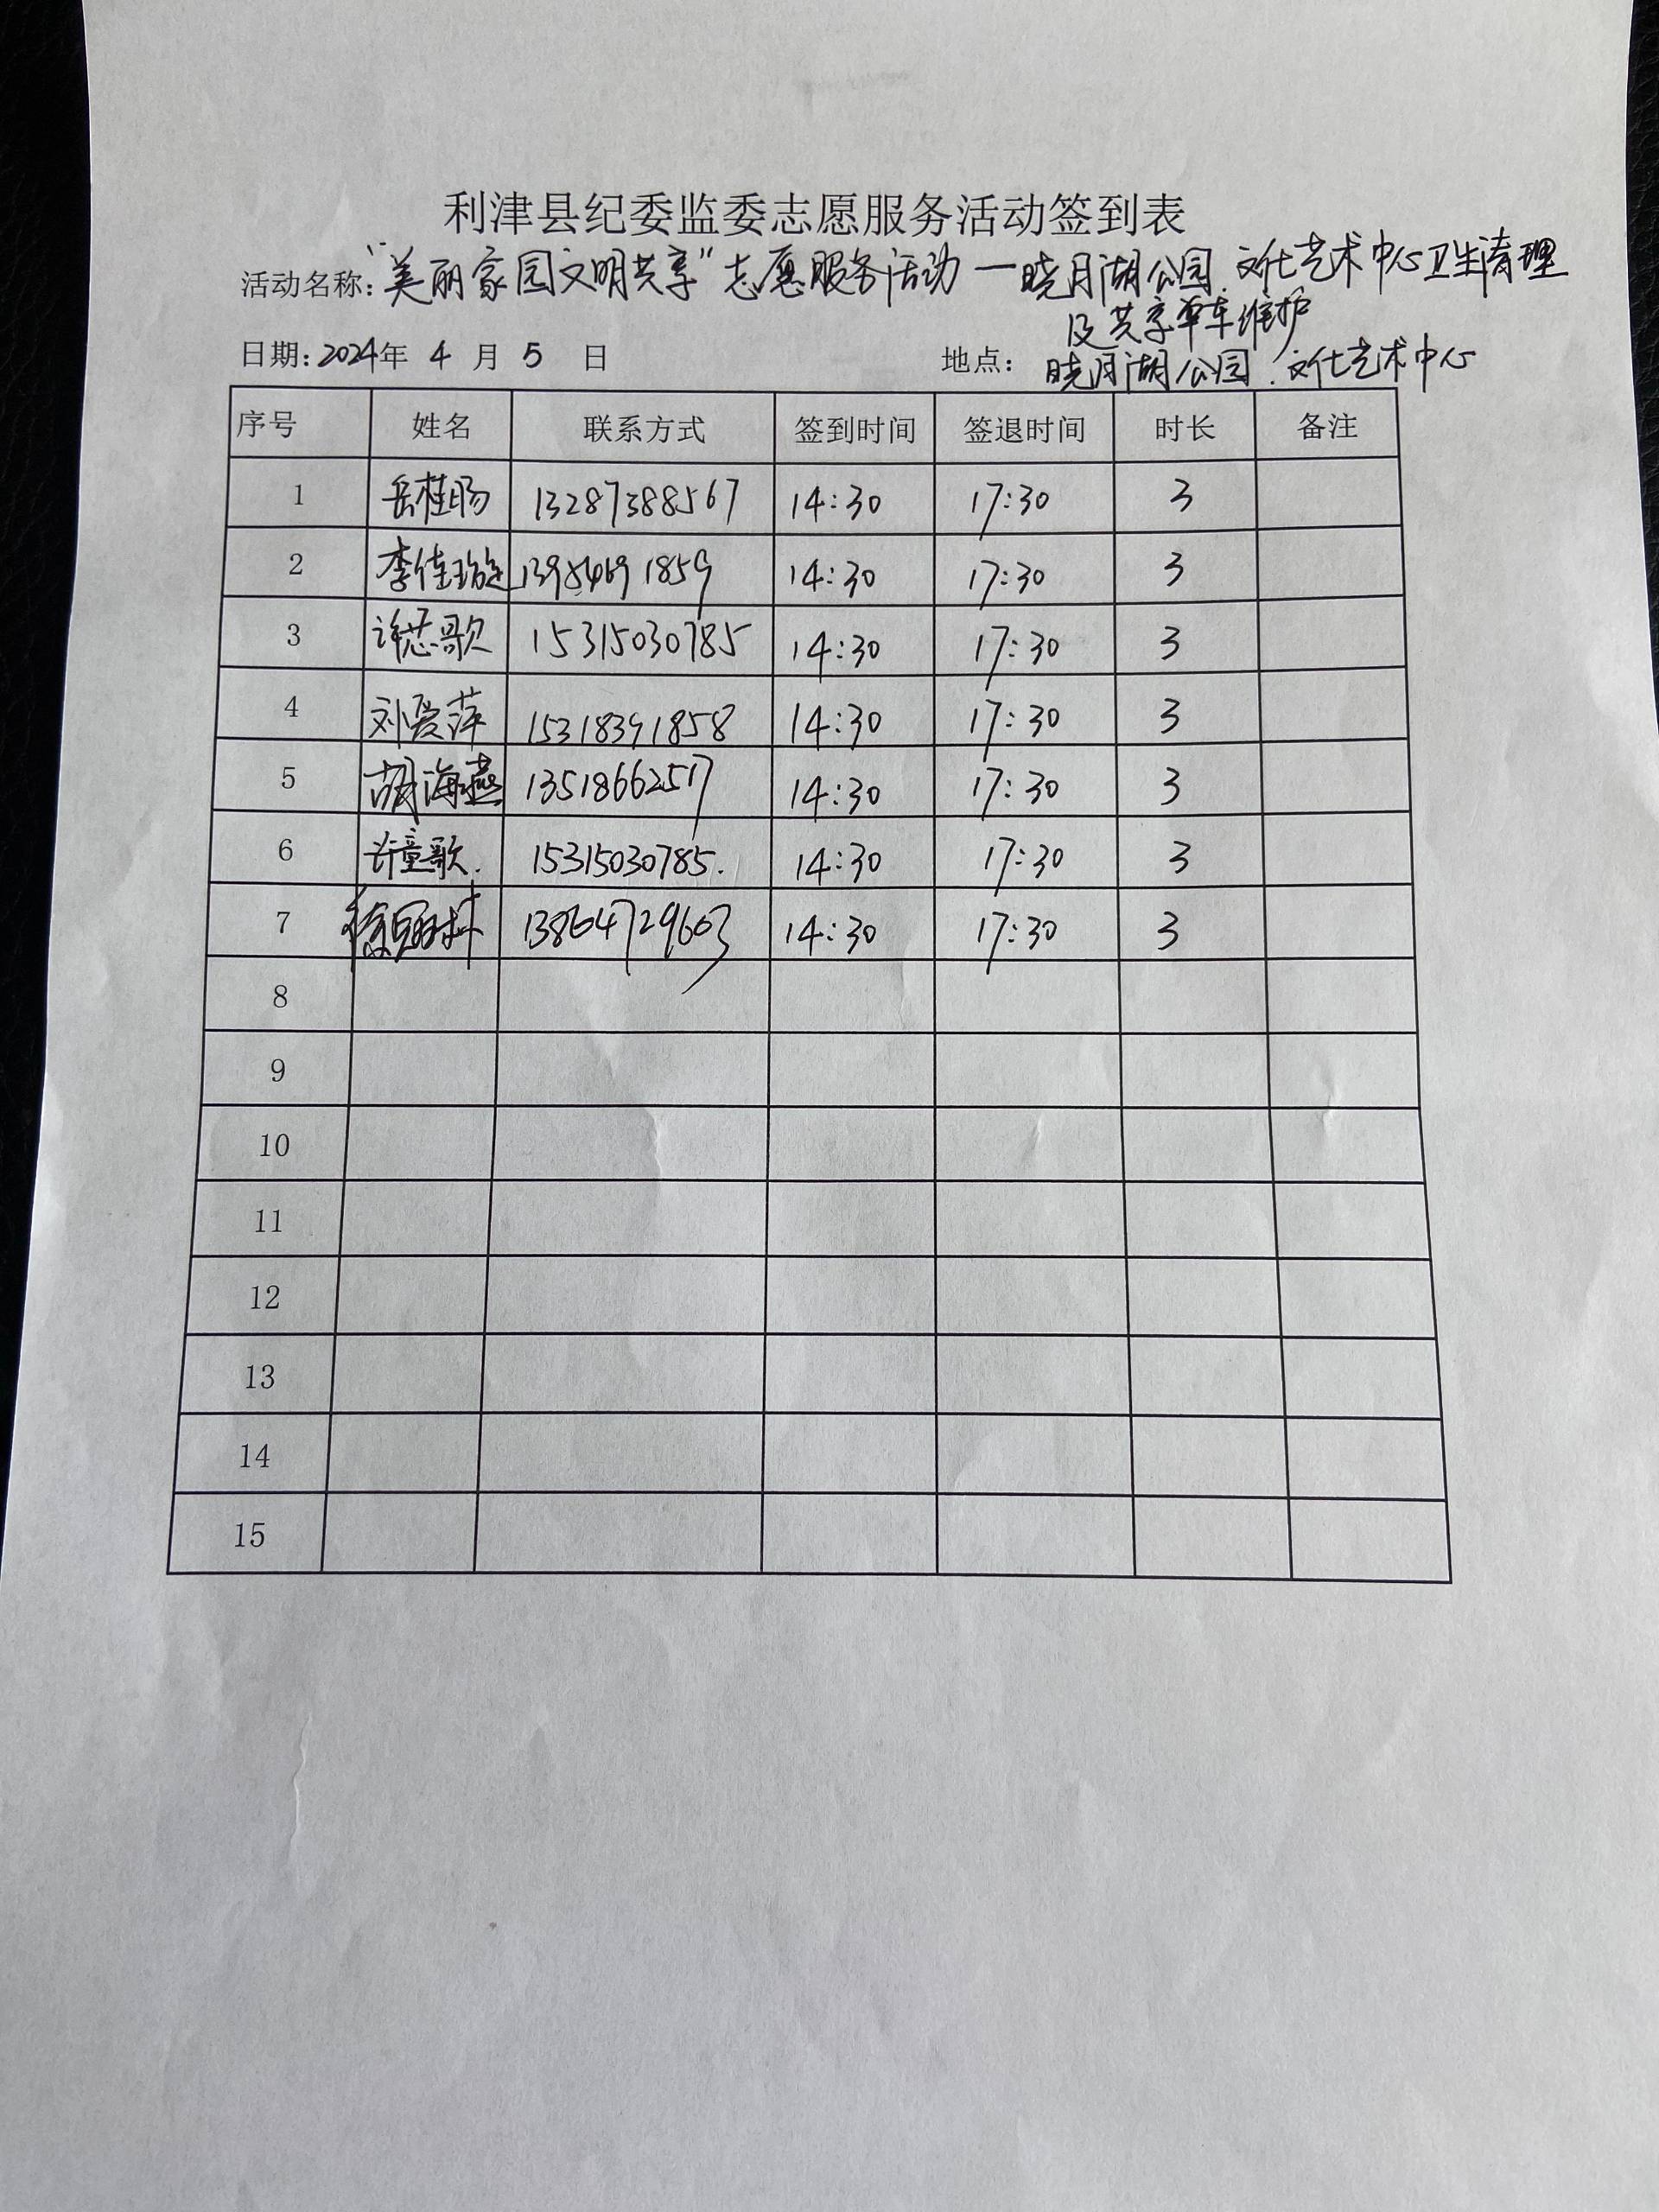 利津县纪委监委志愿服务活动签到表
活动名称:"美丽家园文明共享"志愿服务活动—晓月湖公园、文化艺术中心卫生清理
及共享单车维护
日期:2024年 4 月 5 日 地点: 晓月湖公园、文化艺术中心
序号 姓名 联系方式 签到时间 签退时间 时长 备注
1 岳桂旸 13287388567 14:30 17:30 3
2 李佳璇 14:30 17:30 3
3 许芯歌 15315030785 14:30 17:30 3
4 刘爱萍 15318391858 14:30 17:30 3
5 胡海燕 13518662517 14:30 17:30 3
6 许童歌. 15315030785. 14:30 17:30 3
7 13864729603 14:30 17:30 3
8
9
10
11
12
13
14
15